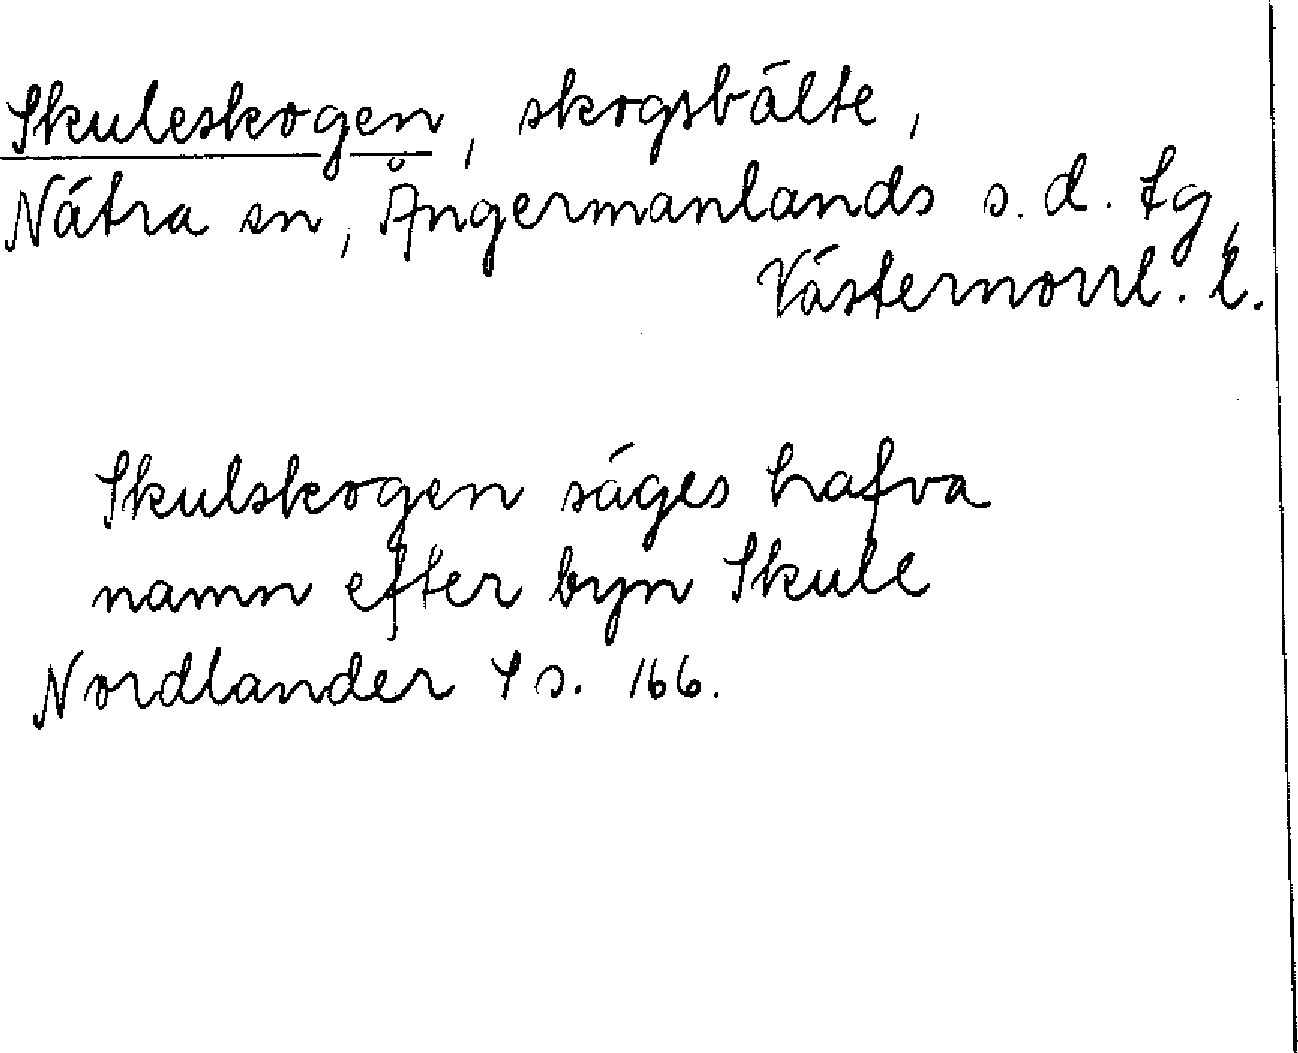 Skuleskogen, skogsbälte,
Nätra sn, Ångermanlands s.d. tg,
Västernorrl. l.
Skulskogen säges hafva
namn efter byn Skule
Nordlander S s. 166.